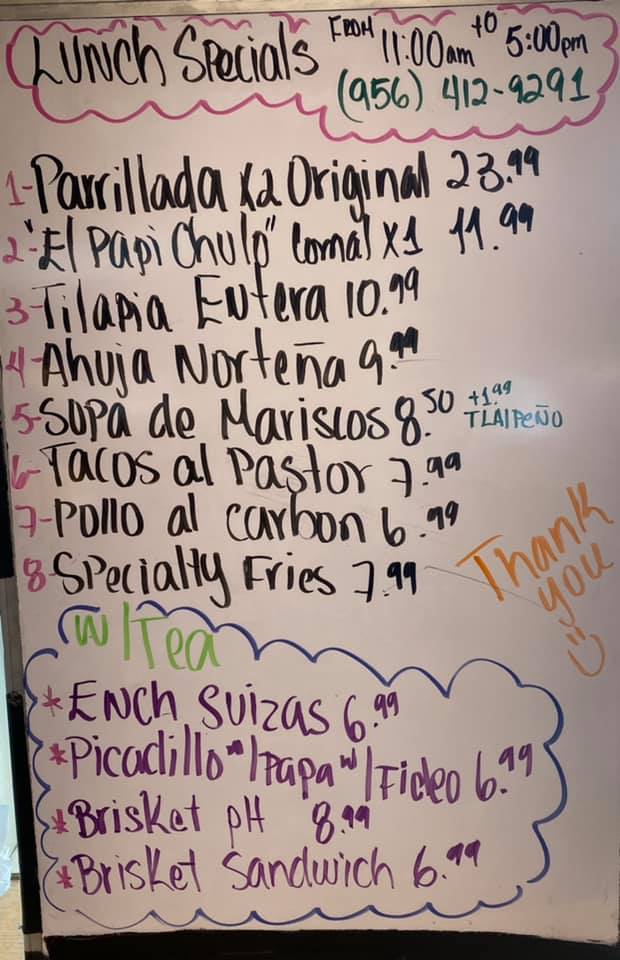 Lunch Specials FROM 11:00am to 5:00pm
(956) 412-9291
1-Parrillada x2 Original 23.99
2-"El Papi Chulo" Comal x1 11.99
3-Tilapia Entera 10.99
4-Ahuja Norteña 9.99
5-Sopa de Mariscos 8.50 +1.99 TLAlPEÑO
6-Tacos al Pastor 7.99
7-Pollo al carbon 6.99
8-Specialty Fries 7.99
Thank you
w/Tea
*Ench Suizas 6.99
*Picadillo w/Papa w/Fideo 6.99
*Brisket pH 8.99
*Brisket Sandwich 6.99